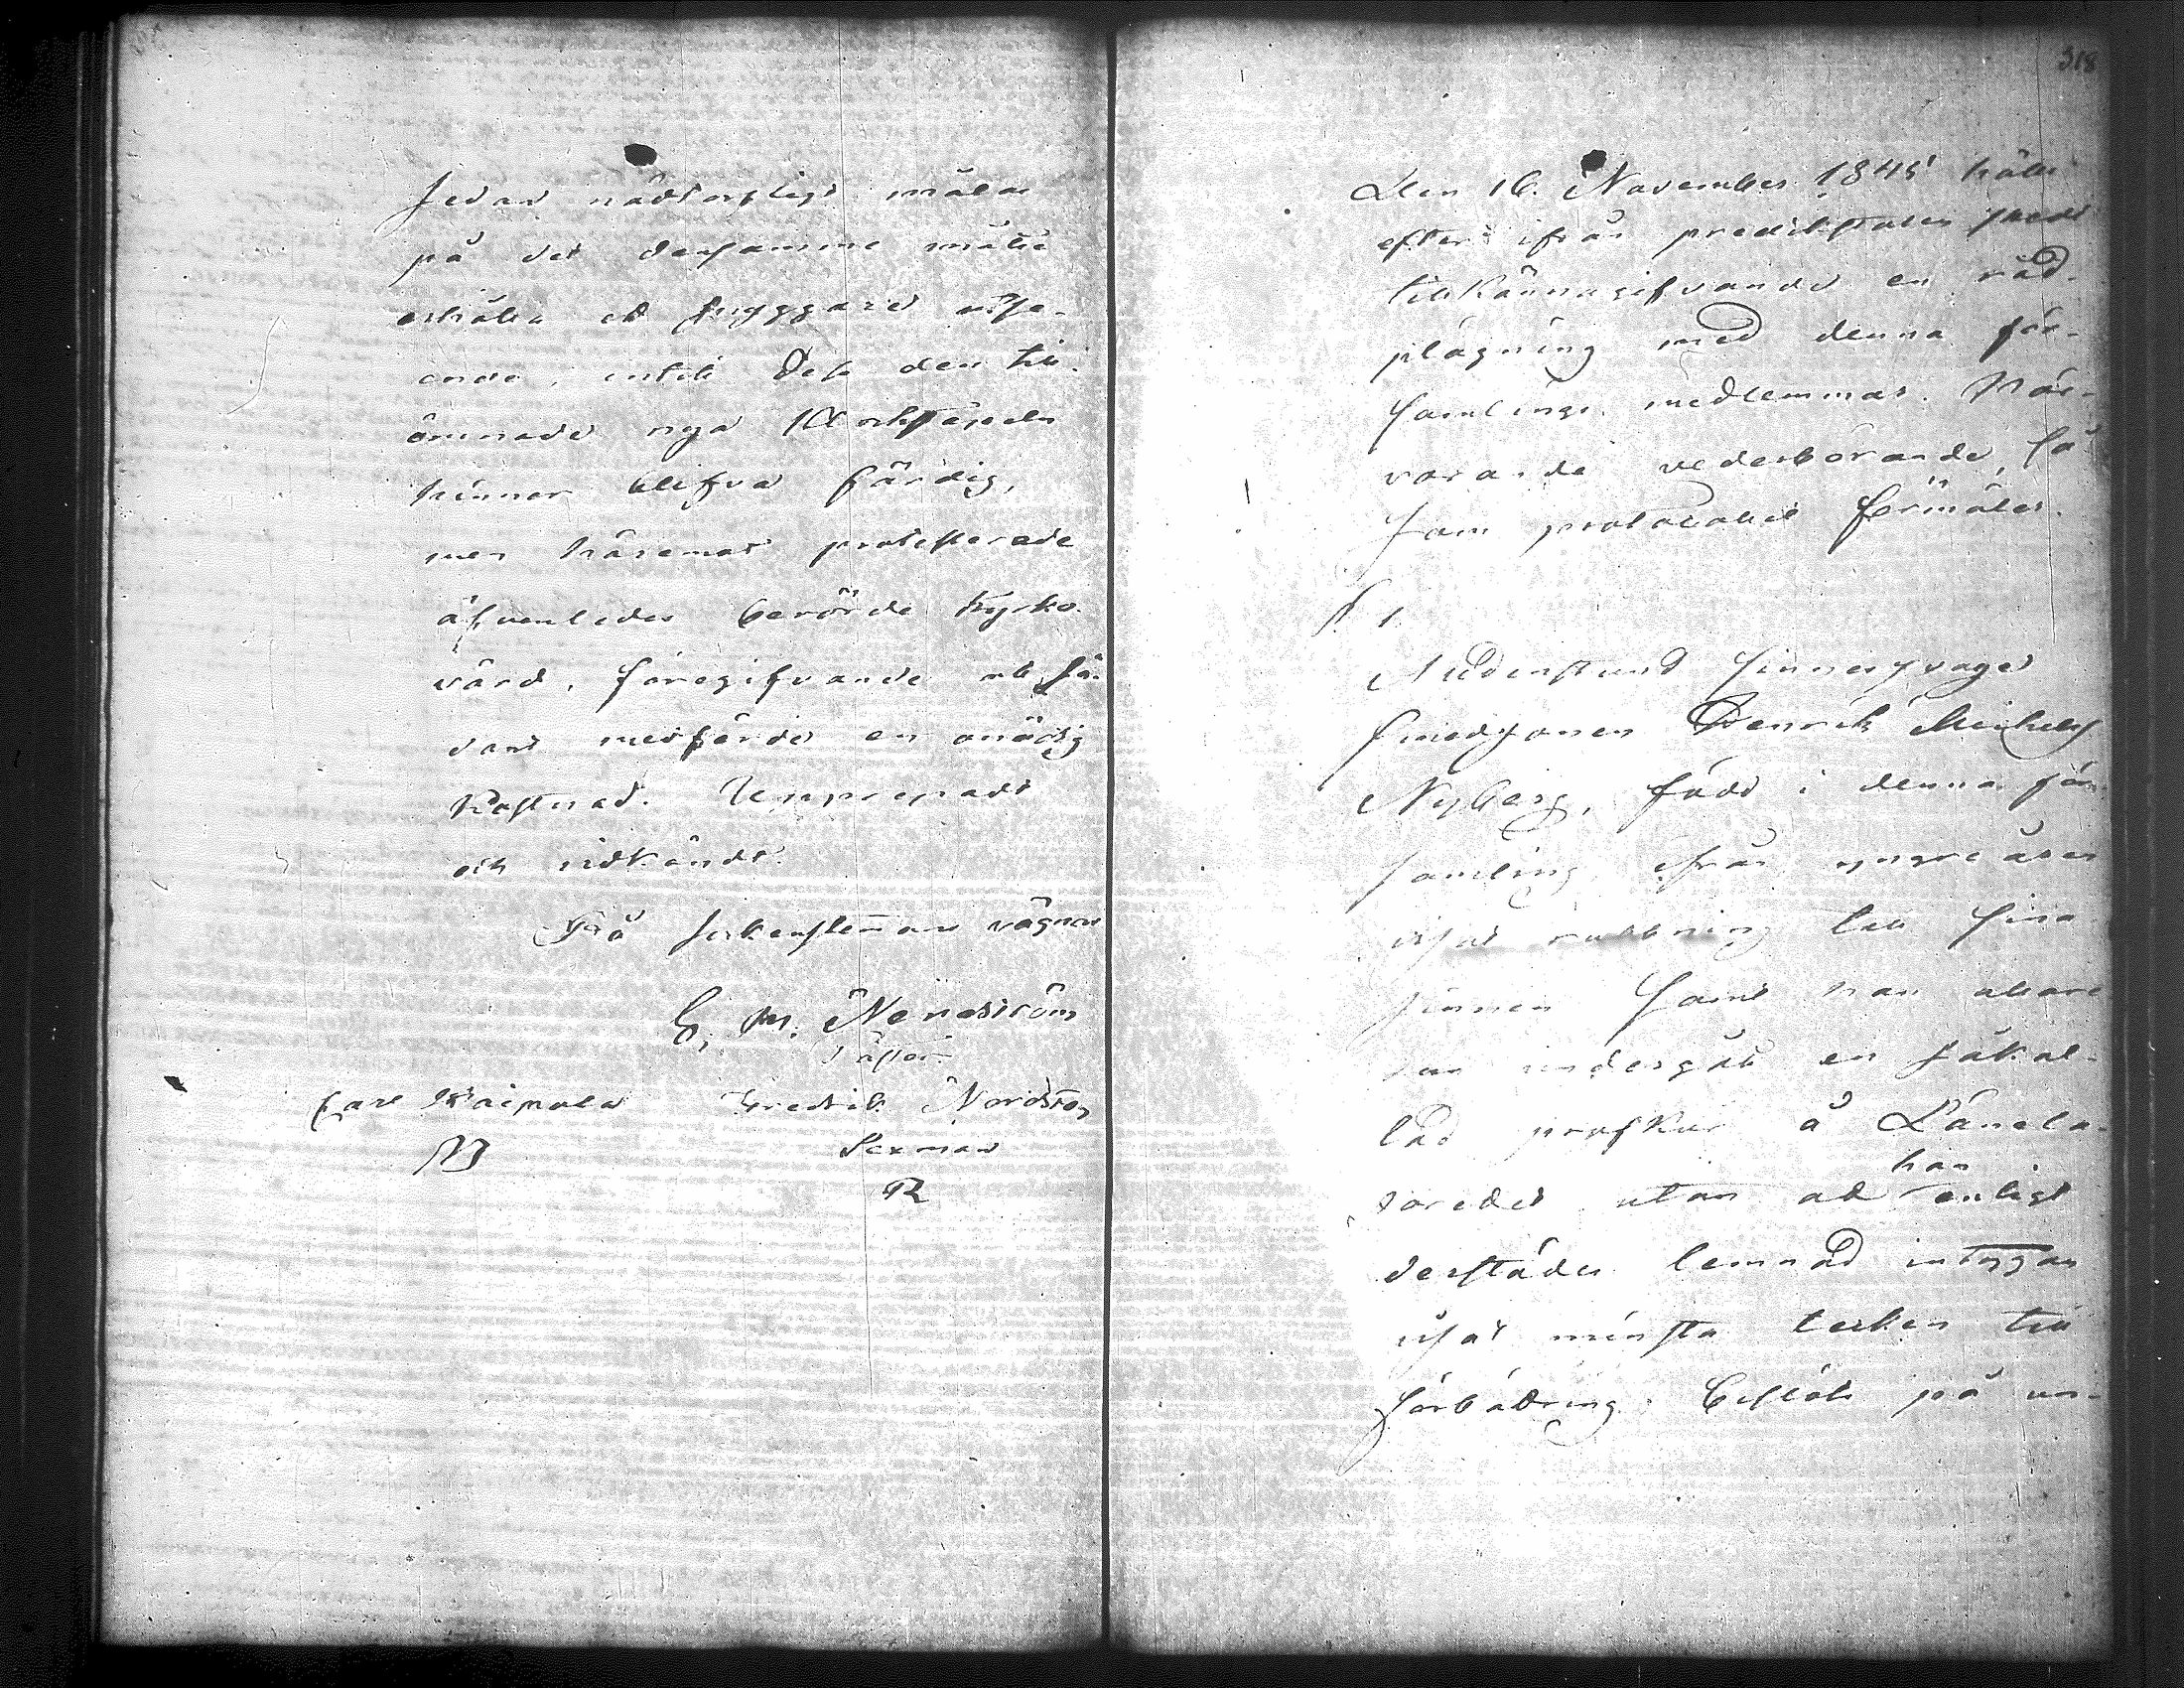 sedan nödtorftigt måla
på det densamme måtte
erhålla ett snyggare utse-
ende, intill dess den till-
ämnade nya Klockstapeln
hinner blifva färdig,
men häremot protesterade
äfvenledes berörde kyrko-
värd, föregifvande att så-
dant medförde en onödig
Kostnad. Uppropadt
och vidkändt.
På sockenstemans vägnar
E. M. Nendström
Pastor
Carl Kaipala Fredrik Nordstr
Sexman
318
Den 16. November 1845 hölls
efter ifrån predikstolen skedt
tillkännagifvande en råd-
plägning med denna för-
samlings medlemmar. När-
varande vederbörande, så
som protocollet förmäler.
§ 1.
Alldenstund sinnessvage
smedsonen Henrik Michelss
Nyberg, född i denna för-
samling, ifrån yngre åren
visat rubbning till sina
sinnen samt han allare-
dan undergått en såkal-
lad profkur å Länela-
han
zarettet utan att enligt
derstädes lemnad intygan
visat minsta tecken till
förbättring; Beslöts på un-